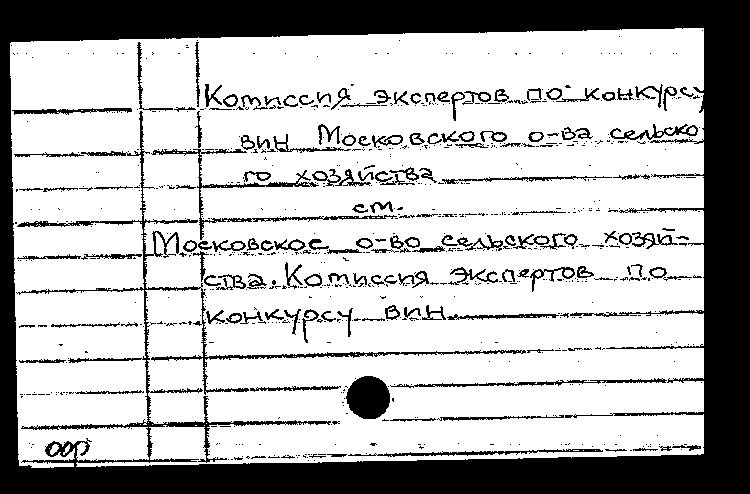 Комиссия экспертов по конкурсу
вин Московского о-ва сельско
го хозяйства
см.
Московское о-во сельского хозяй-
ства. Комиссия экспертов по
конкурсу вин.
оор